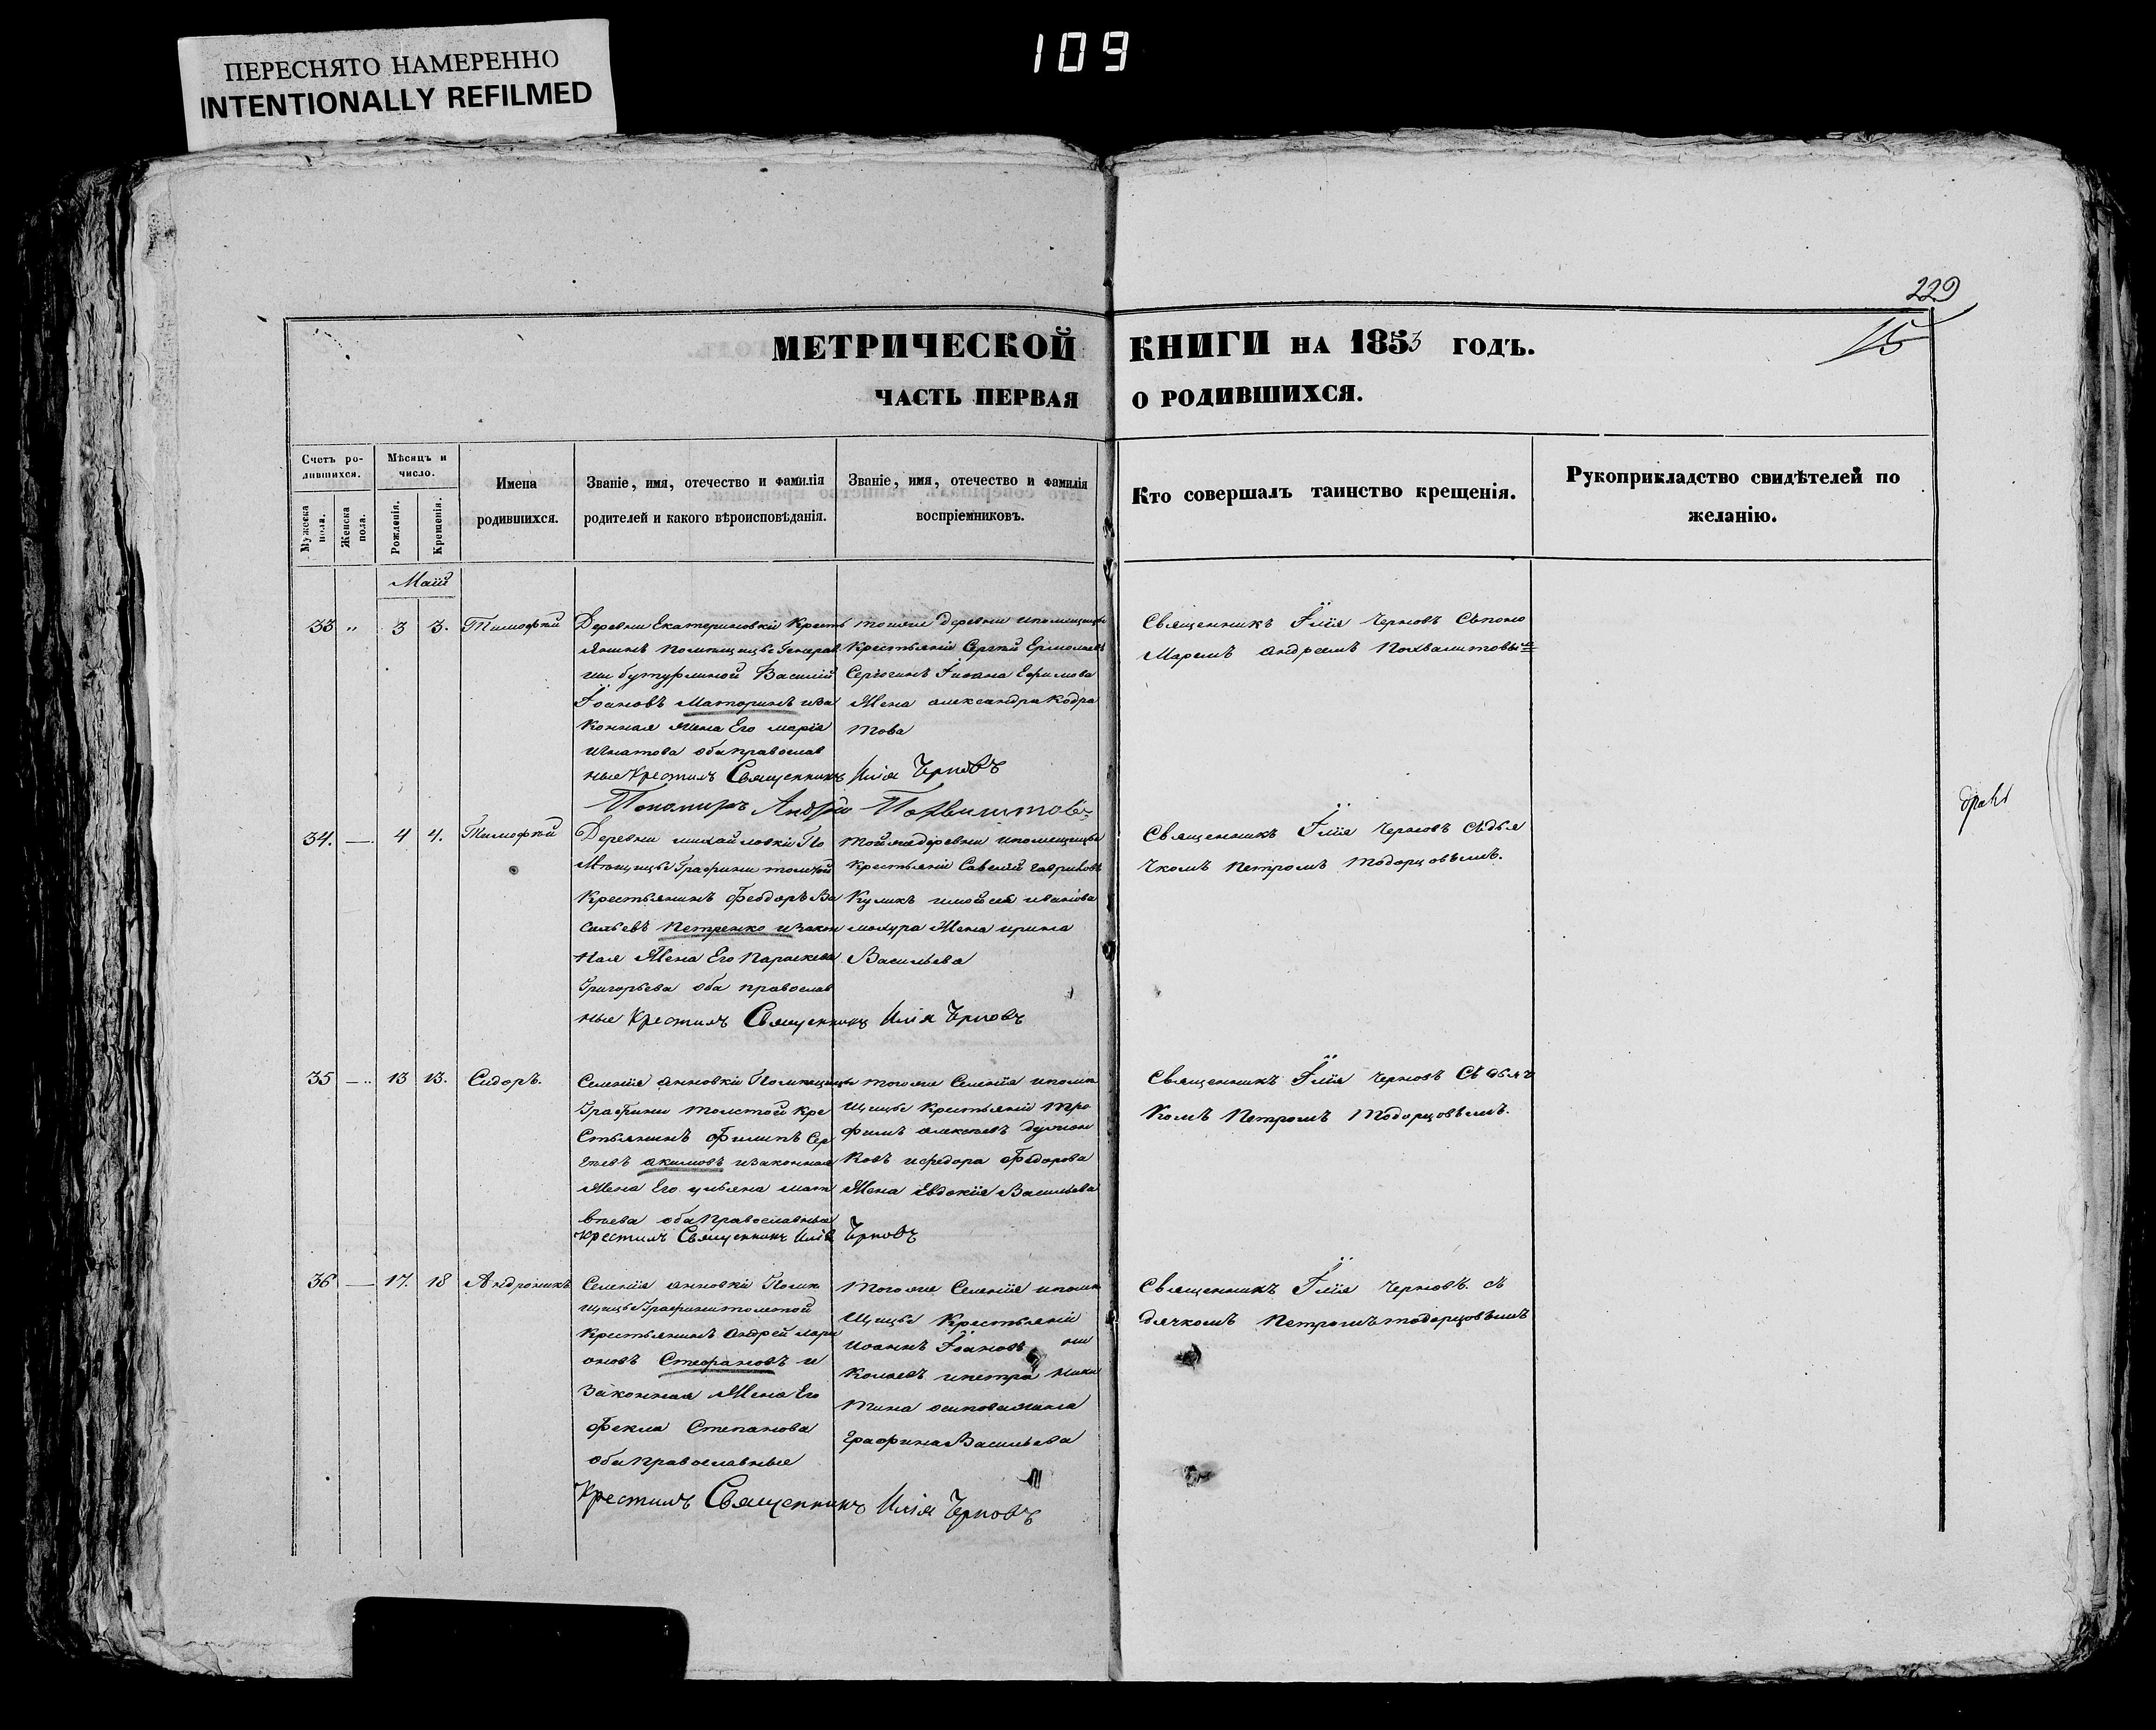 109
ПЕРЕСНЯТО НАМЕРЕННО
INTENTIONALLY REFILMED
229
15
МЕТРИЧЕСКОЙ КНИГИ НА 1853 ГОДЪ.
ЧАСТЬ ПЕРВАЯ О РОДИВШИХСЯ.
Счетъ родившихся.
Мужеска пола.
Женска пола.
Мѣсяцъ и число.
Рожденія.
Крещенія.
Имена
родившихся.
Званіе, имя, отечество и фамилія
родителей и какого вѣроисповѣданія.
Званіе, имя, отечество и фамилія
воспріемниковъ.
Кто совершалъ таинство крещенія.
Рукоприкладство свидѣтелей по
желанію.
Маій
33 „ 3 3. Тимофѣй
Деревни Екатериновки Кресть
янинъ помѣщицы Генерал
ши бутурлиной Василій
Їоановъ Маторинъ иза
конная Жена Его марія
игнатова оба православ
ные Крестилъ Священникъ Илія Черновъ
Пономарь Андрей Похвалитовъ
тояже деревни ипомещицы
Крестьяній Сергѣй Ермолаевъ
Серюгинъ Їиоана Ефимова
Жена александра Кодра
това
Священникъ Їлія Черновъ Съпоно
Маремъ андреемъ Похвалитовы
34. — 4 4. Тимофѣй
Деревни михайловки По
Мѣщицы Графини толстой
Крестьянинъ Феодоръ Ва
сильевъ Петренко изакон
ная Жена Его Параскева
Григорьева оба православ
ные Крестилъ Священникъ Илія Черновъ
тойжедеревни ипомещицы
Крестьяній Савелій гавриловъ
Куликъ имойсея иванова
мохура Жена ирина
Васильева
Священникъ Їлія Черновъ Съдья
Чкомъ Петромъ тодорцовымъ.
35 — 13 13. Сидоръ.
Селенія анновки Помѣщицы
Графини толстой Кре
Стьянинъ Филипъ Сер
гѣевъ акимовъ изаконная
Жена Его ульяна мат
вѣева оба православные
Крестилъ Священникъ Илія Черновъ
тогоже Селенія ипомѣ
щицы Крестьяній тро
фимъ алексѣевъ
ковъ ифедора Федорова
Жена Евдокія Васильева
Священникъ Їлія Черновъ Съ дьяч
Комъ Петромъ Тодорцовымъ.
36 — 17. 18 Андроникъ
Селенія анновки Помѣ
щицы Графини толстой
Крестьянинъ андрей лари
оновъ Стефановъ и
Законная Жена Его
Фекла Степанова
оба православные
Крестилъ Священникъ Илія Черновъ
тогоже Селенія ипомѣ
щицы Крестьяній
иоаннъ Їоановъ ни
колаевъ ипетра ники
тина
графина Васильева
Священникъ Їлія Черновъ. съ
дячкомъ Петромъ тодорцовымъ